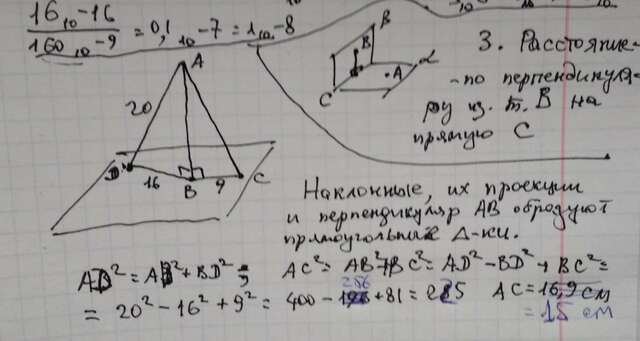 16₁₀-16
160₁₀-9
= 0,1₁₀-7 = 1₁₀-8
B
B
A
α
C
3. Расстояние-
-по перпендикуля-
ру из т. В на
прямую С
A
20
D
16
B
9
C
Наклонные, их проекции
и перпендикуляр АВ образуют
прямоугольные Δ-ки.
AD² = AB² + BD² ⇒
AC² = AB² + BC² = AD² - BD² + BC² =
= 20² - 16² + 9² = 400 - 256 + 81 = 225
AC = 16,9 см
= 15 см